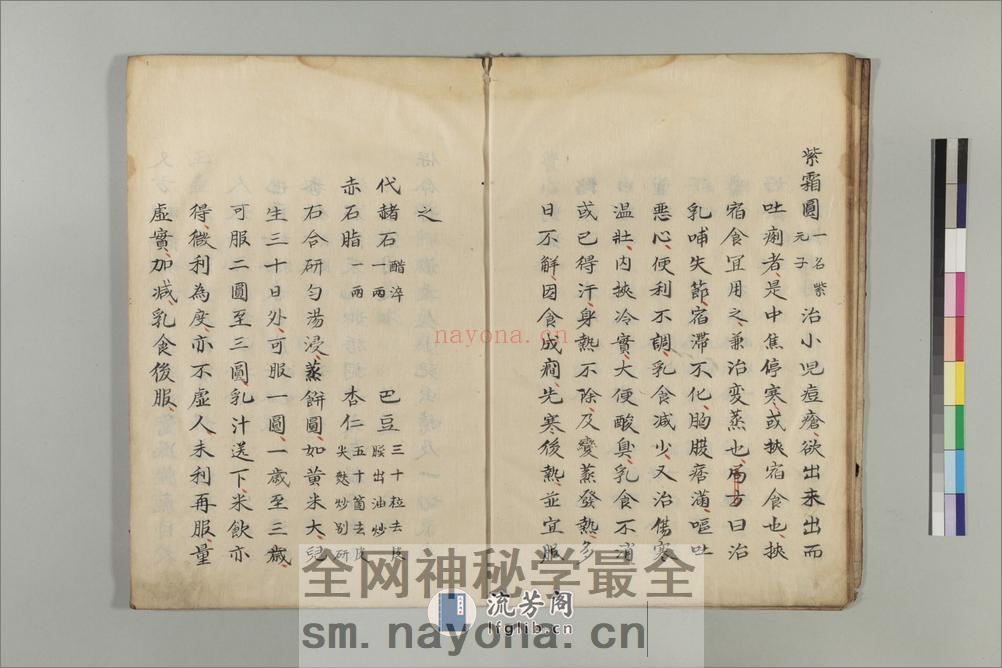 紫霜圓一名紫元子治小児痘瘡欲出未出而
吐痢者是中焦停寒或挾宿食也挾
宿食宜用之兼治変蒸也局方曰治
乳哺失節宿滞不化胸腹痞滿嘔吐
惡心便利不調乳食減少又治傷寒
温壮内挾冷實大便酸臭乳食不消
或已得汗身熱不除及變蒸發熱多
日不解因食成癇先寒後熱並宜服
之
代赭石醋淬一兩 巴豆三十粒去皮膜出油炒
赤石脂一兩 杏仁五十箇去皮尖麩炒別研
石合研匀湯浸蒸餅圓如黄米大兒
生三十日外可服一圓一歳至三歳
可服二圓至三圓乳汁送下米飲亦
得微利為度亦不虚人未利再服量
虚實加减乳食後服
nayona.cn
全网神秘学最全
流芳阁
lfglib.cn
sm.nayona.cn